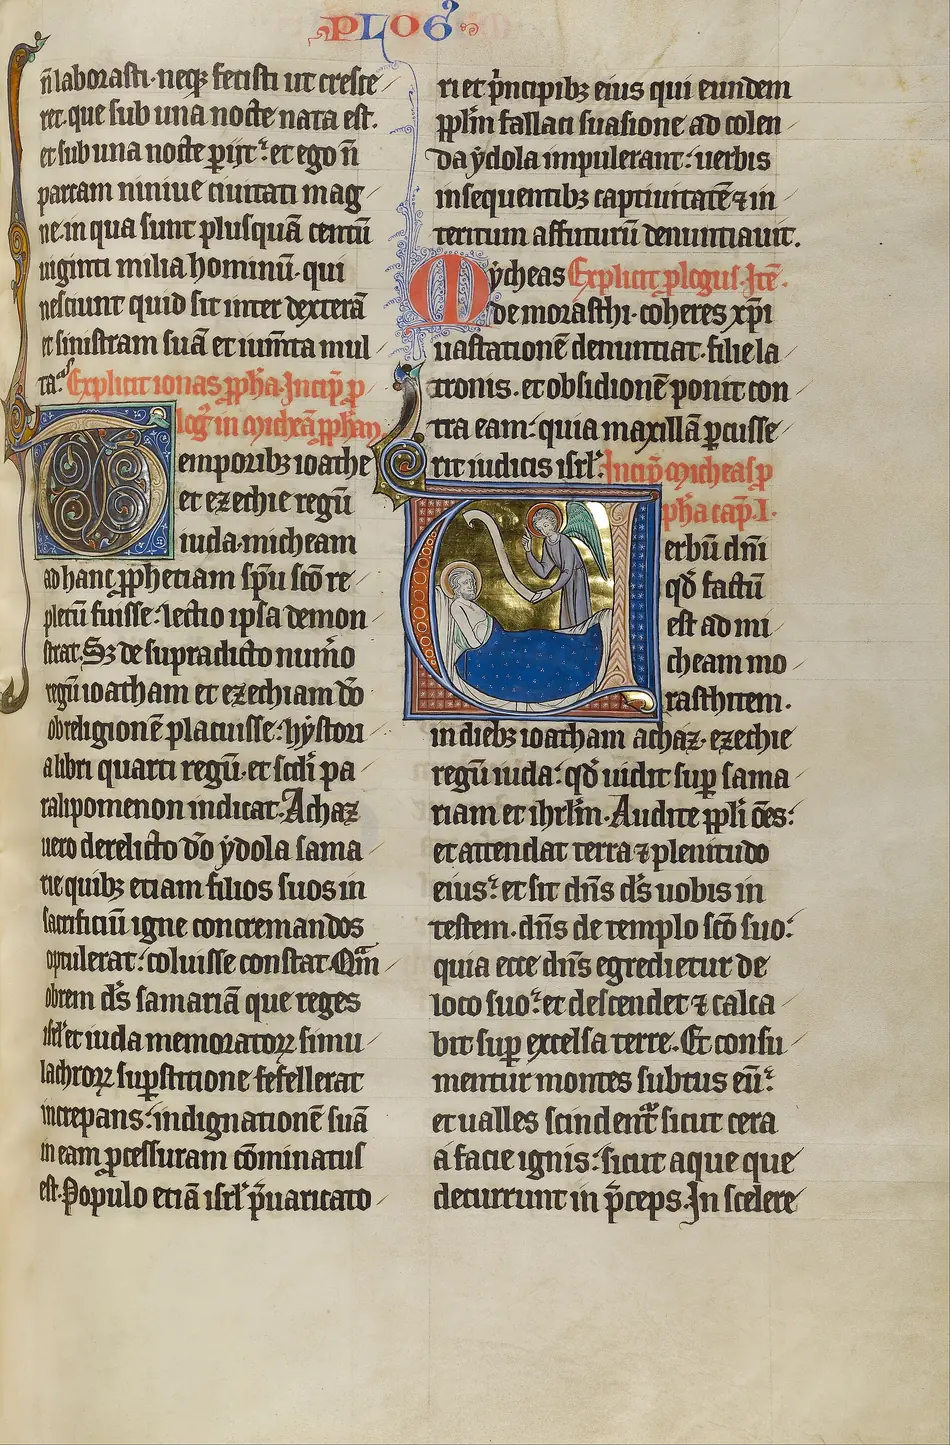 PLOG̃
ñ laborasti·neqꝫ fecisti ut cresce
ret·que sub una nocte nata est.
et sub una nocte ꝑijt: et ego ñ
parcam niniue ciuitati mag
ne·in qua sunt plusquā centū
uiginti milia hominū·qui
nesciunt quid sit inter dexterā
et sinistram suā et iumta mul
ta· Explicit ionas ꝓpha·Incip̄ ꝓ
log̃ in mycheā ꝓphām
Temporibꝫ ioathe
et ezechie regū
iuda·micheam
ad hanc ꝓphetiam sp̄u sc̄o re
pletū fuisse: lectio ipsa demon
strat. Sꝫ de supradicto num̄o
regū ioatham et ezechiam dō
ob religionē placuisse: hystori
a libri quarti regū·et sc̄di pa
ralipomenon indicat·Achaz
uero derelicto dō ydola sama
rie quibꝫ etiam filios suos in
sacrificiū igne concremandos
optulerat: coluisse constat·Qm̄
obrem ds̄ samariā que reges
isrl̄ et iuda memoratoꝝ simu
lachroꝝ suꝑstitione fefellerat
increpans: indignationē suā
in eam ꝓcessuram cōminatus
est·Populo etiā isrl̄ p̄uaricato
ri et p̄ncipibꝫ eius qui eundem
ppl̄m fallaci suasione ad colen
da ydola impulerant: uerbis
insequentibꝫ captiuitatē ⁊ in
teritum affuturū denuntiauit.
Mycheas Explicit ꝓlogus·Itē·
de morasthi·coheres xp̄i
uastationē denuntiat·filie la
tronis·et obsidionē ponit con
tra eam: quia maxillā ꝑcusse
rit iudicis isrl̄: Incip̄ micheas ꝓ
pha cap̄·I·
Verbū dn̄i
qd̄ factū
est ad mi
cheam mo
rasthitem·
in diebꝫ ioatham achaz·ezechie
regū iuda: qd̄ uidit suꝑ sama
riam et ihrl̄m·Audite ppl̄i ōes:
et attendat terra ⁊ plenitudo
eius: et sit dn̄s ds̄ uobis in
testem·dn̄s de templo sc̄o suo:
quia ecce dn̄s egredietur de
loco suo: et descendet ⁊ calca
bit suꝑ excelsa terre·Et consu
mentur montes subtus eū:
et ualles scindent᷑ sicut cera
a facie ignis: sicut aque que
decurrunt in p̄ceps·In scelere